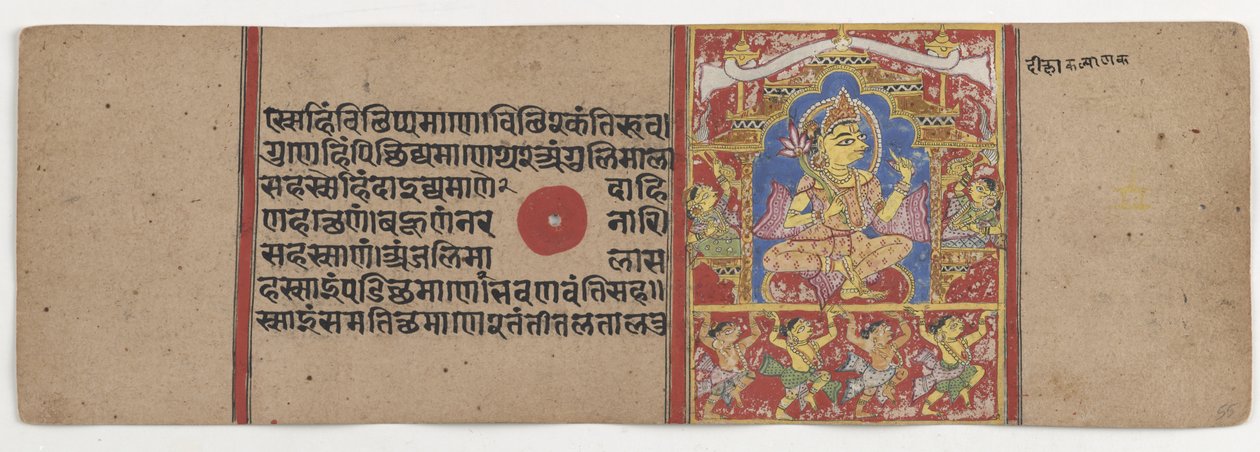 एस्सहिं विछिप्पमाणे। विछि२ कंतिरूव।
गुणेहिं पिछिद्यमाणे पु२ अंगुलिमाला
सहस्सेहिं दाइद्यमाणे२ दाहि
णहाछेणं। बहूणं नर नारी
सहस्साणं अंजलिमा लास
हस्साइं पडिछमाणे भवणवंतिसह॥
स्साइं समतिछमाणे२ तंतीतलतालतु
दीक्षाकल्याणक
56